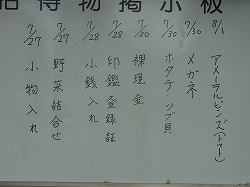 拾得物掲示板
8/1 アメーラルビンズ(トマト)
7/30 メガネ
7/30 ホタテツブ貝
7/30 裸現金
7/28 印鑑登録証
7/28 小銭入れ
7/27 野菜詰合せ
7/27 小物入れ